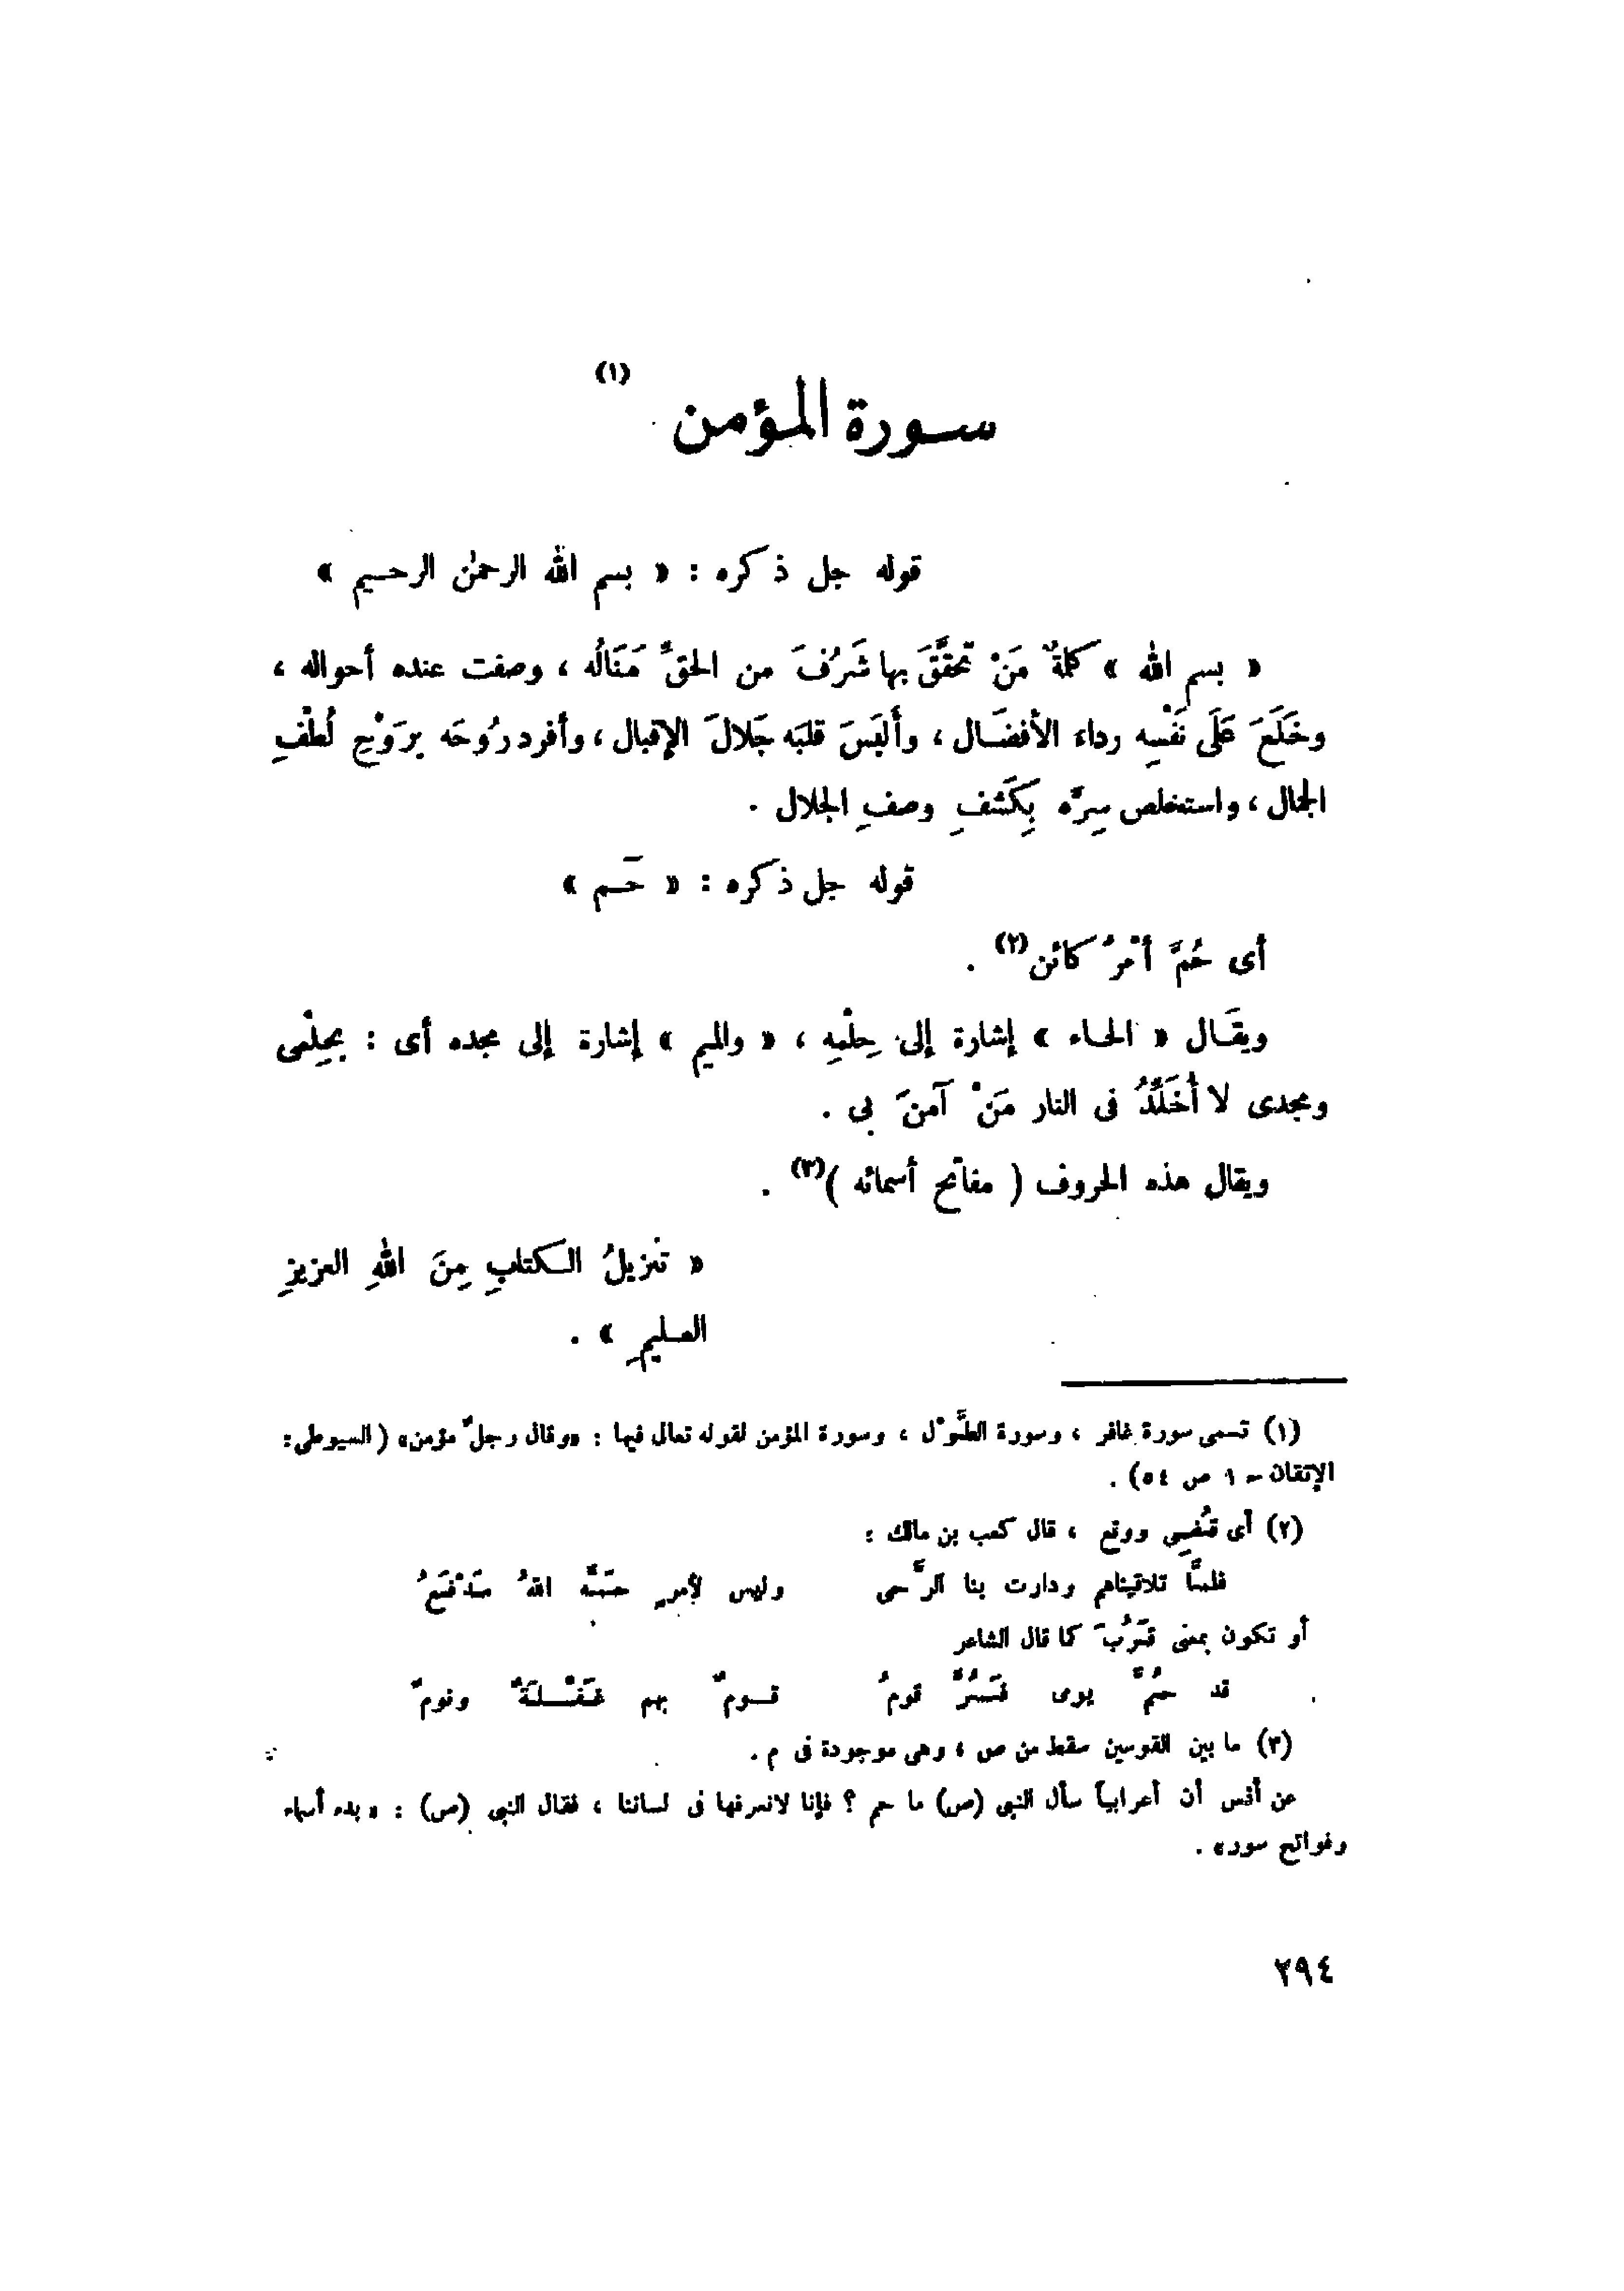 سورة المؤمن (١)
قوله جل ذكره : « بسم الله الرحمٰن الرحيم »
« بسم الله » كلمةٌ مَنْ تحقَّقَ بها شَرُفَ من الحقِّ مَنَالُه ، وصفت عنده أحواله ،
وخَلَعَ عَلَى نَفْسِه رداء الأفضَال ، وأَلبَسَ قلبَه جَلالَ الإقبال ، وأفرد رُوحَه برَوْحِ لُطْفِ
الجمال ، واستخلص سِرَّه بِكَشْفِ وصفِ الجلال .
قوله جل ذكره : « حَـم »
أى حُمَّ أمْرٌ كائن (٢) .
ويقَال « الحاء » إشارة إلى حِلْمِه ، « والميم » إشارة إلى مجده أى : بحِلْمى
ومجدى لا أُخَلِّدُ فى النار مَنْ آمنَ بى .
ويقال هذه الحروف ( مفاتح أسمائه ) (٣) .
« تنزيلُ الكتابِ مِنَ اللهِ العزيزِ
العليمِ » .
(١) تسمى سورة غافر ، وسورة الطَّوْل ، وسورة المؤمن لقوله تعالى فيها : «وقال رجلٌ مؤمن» ( السيوطى :
الإتقان حـ ١ ص ٥٤) .
(٢) أى قُضِى ووقع ، قال كعب بن مالك :
فلمَّا تلاقيناهم ودارت بنا الرَّحى وليس لأمرٍ حَمَّه اللهُ مَدْفَعُ
أو تكون بمعنى قَرُبَ كما قال الشاعر
قد حُمَّ يومى فَسُرَّ قومُ قومٌ بهم غَفْلَةٌ ونومٌ
(٣) ما بين القوسين سقط من ص ، وهى موجودة فى م .
عن أنس أن أعرابياً سأل النبى (ص) ما حم ؟ فإنا لانعرفها فى لساننا ، فقال النبى (ص) : « بدء أسماء
وفواتح سور» .
٢٩٤